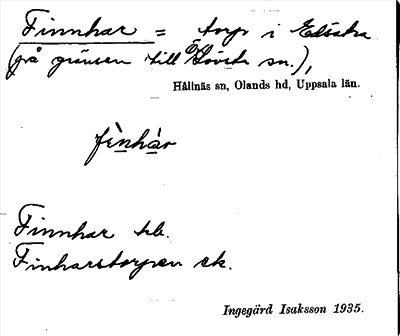 Finnhar = torp i Edsätra
(på gränsen till Ö Lövsta sn.),
Hållnäs sn, Olands hd, Uppsala län.
fènhàr
Finnhar hb.
Finharstorpen ek.
Ingegärd Isaksson 1935.